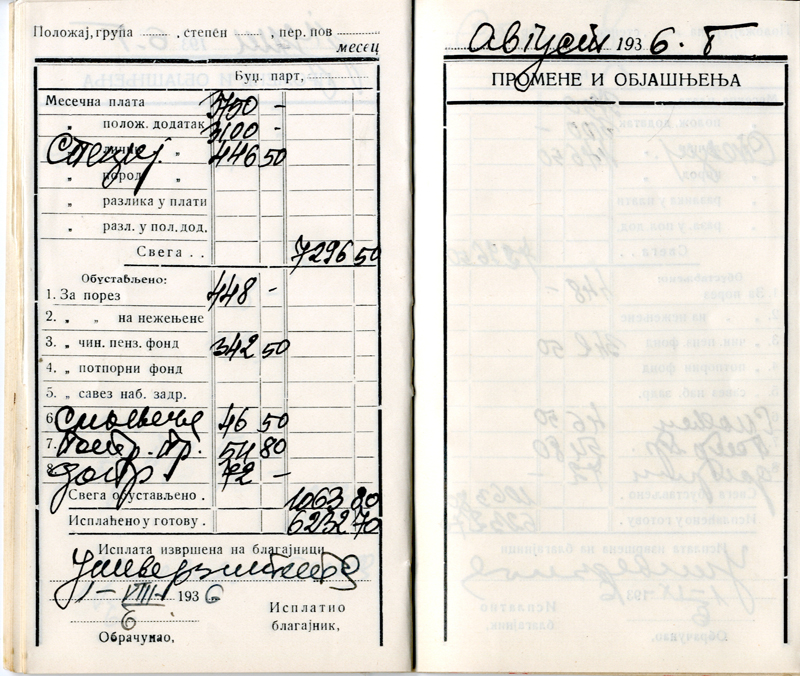 Положај, група , степен , пер. пов
месец
Буџ. парт,
Месечна плата 3750 -
„ полож. додатак 3100 -
„ „ 446 50
„ пород. „
„ разлика у плати
„ разл. у пол. дод.
Свега . . 7296 50
Обустављено:
1. За порез 448 -
2. „ „ на нежењене
3. „ чин. пенз. фонд 342 50
4. „ потпорни фонд
5. „ савез наб. задр.
6 46 50
7. 54 80
8. 72 -
Свега обустављено . 1063 80
Исплаћено у готову . 6232 70
Исплата извршена на благајници
Универзитета
1-VIII- 1936
Обрачунао,
Исплатио
благајник,
Август 1936. г
ПРОМЕНЕ И ОБЈАШЊЕЊА